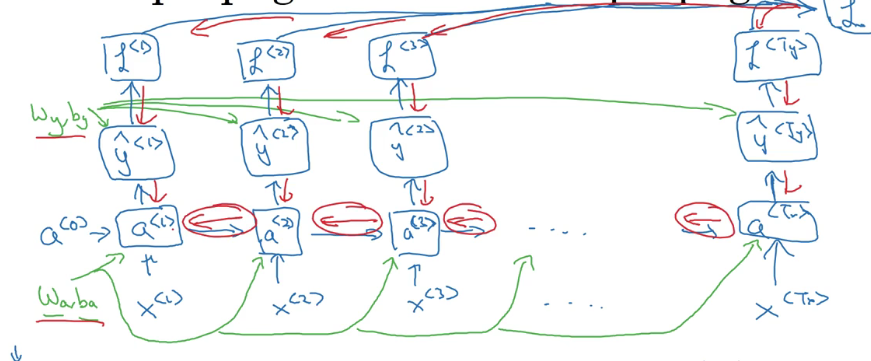 L
L^<1> L^<2> L^<3> L^<Ty>
Wy, by
ŷ^<1> ŷ^<2> ŷ^<2> ŷ^<Ty>
a^<0> a^<1> a^<2> a^<3> .... a^<Tx>
Wa, ba
x^<1> x^<2> x^<3> .... x^<Tx>